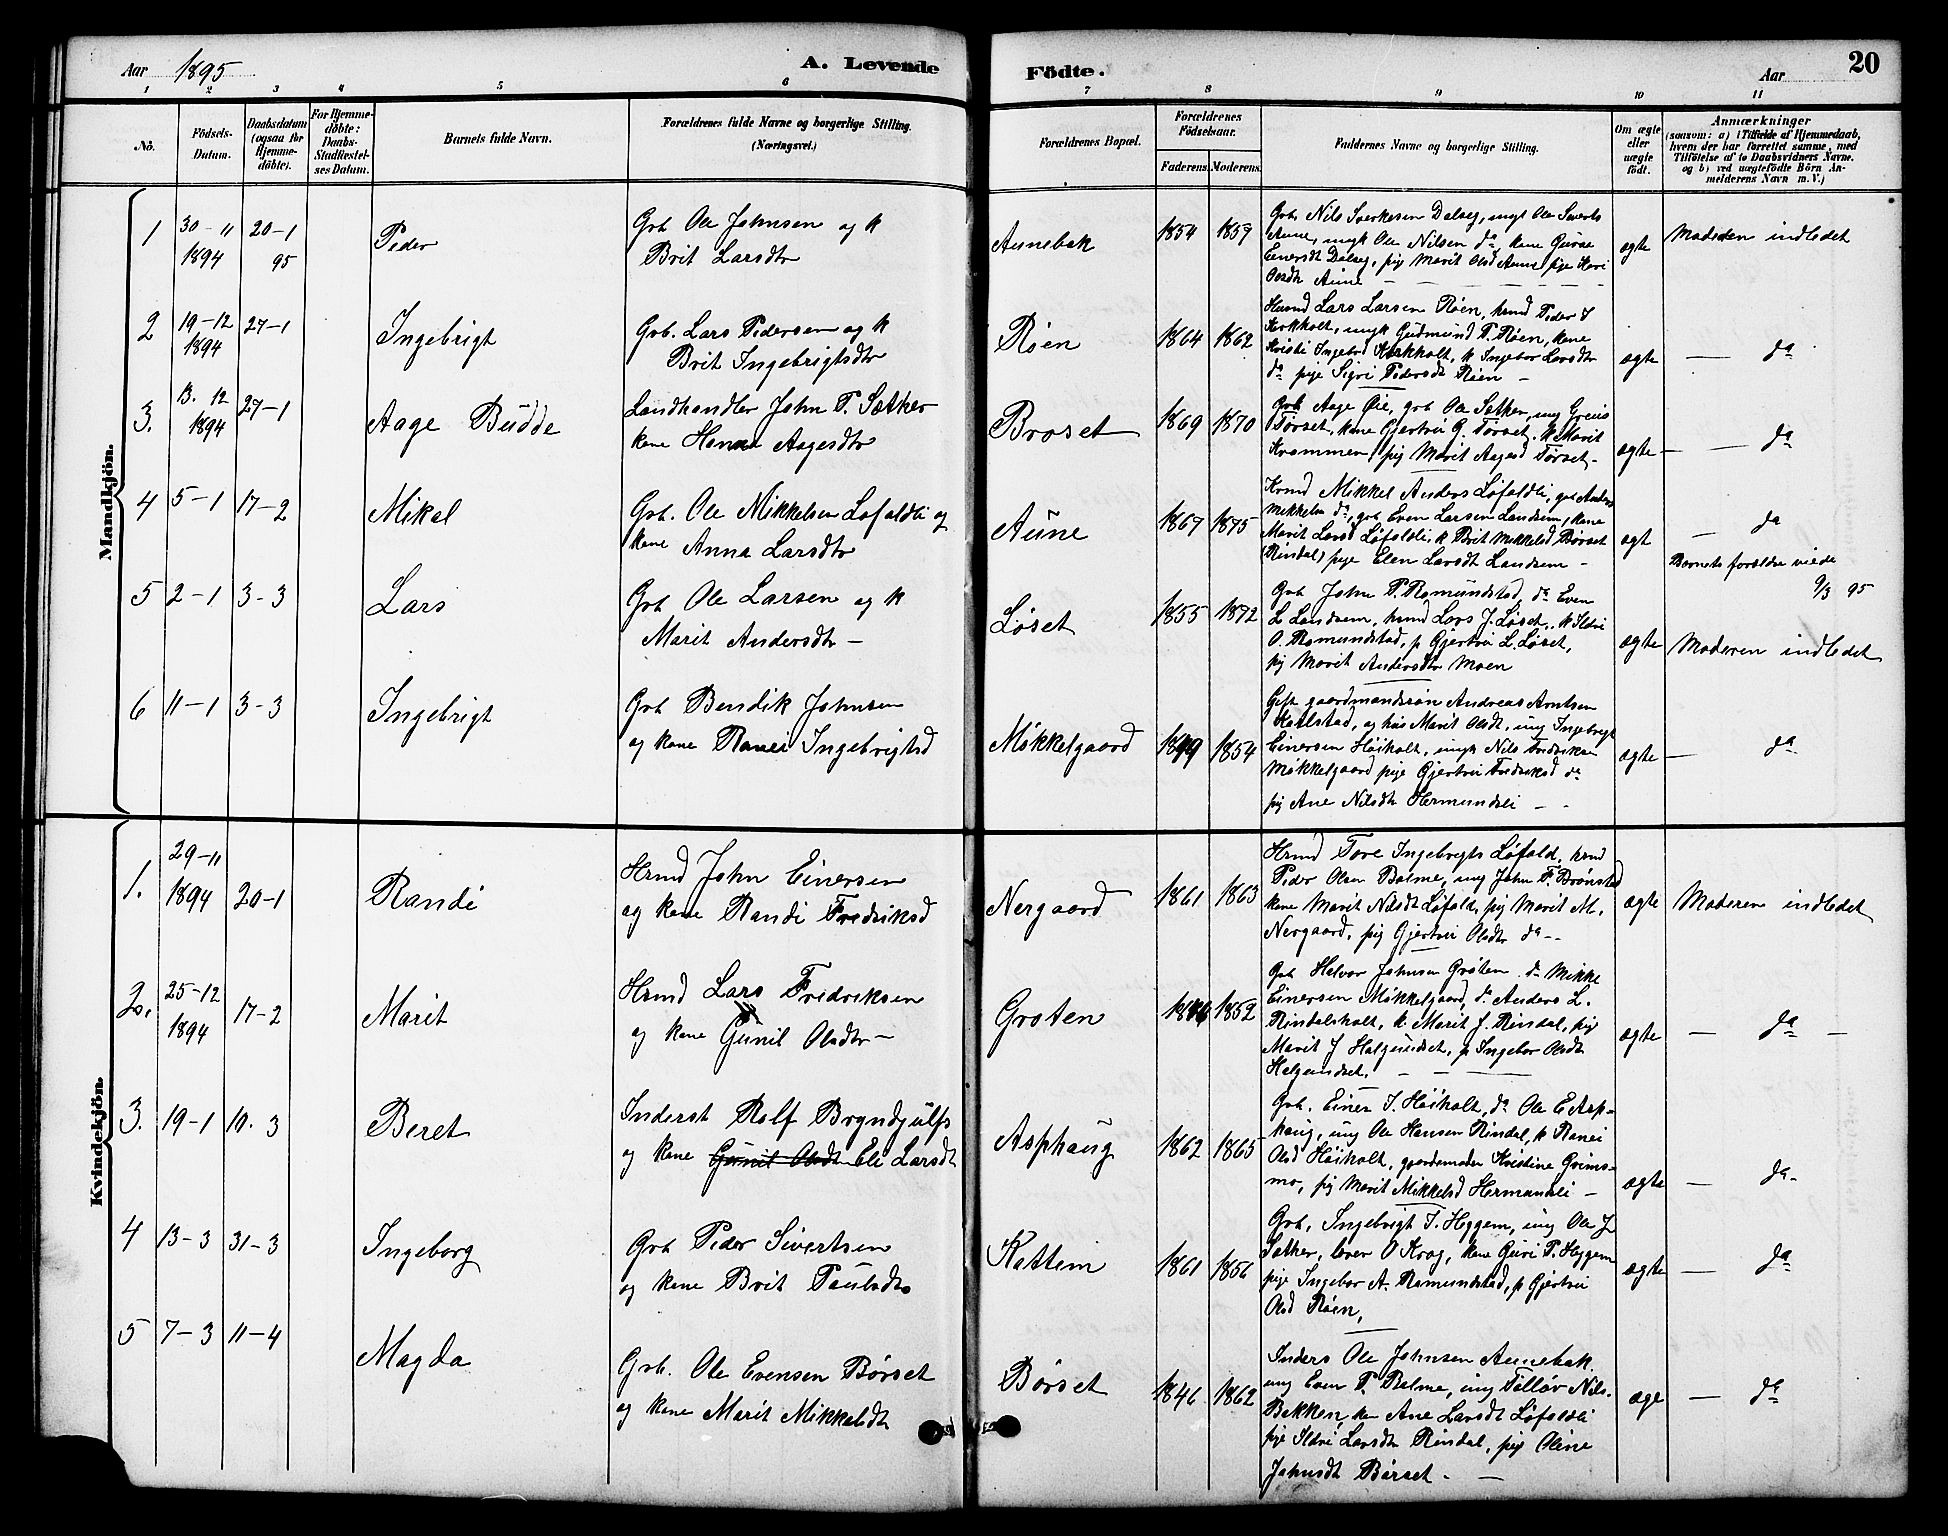 Aar 1895
A. Levende
Födte.
Aar
20
1 2 3 4 5 6 7 8 9 10 11
No.
Födsels-
Datum.
Daabsdatum
(ogsaa for
Hjemme-
döbte).
For Hjemme-
döbte:
Daabs-
Stadfæstel-
ses Datum.
Barnets fulde Navn.
Forældrenes fulde Navne og borgerlige Stilling.
(Næringsvei.)
Forældrenes Bopæl.
Forældrenes
Födselsaar.
Faderens Moderens
Faddernes Navne og borgerlige Stilling.
Om ægte
eller
uægte
födt.
Anmærkninger
(saasom: a) i Tilfælde af Hjemmedaab,
hvem der har forrettet samme, med
Tilföielse af to Daabsvidners Navne.
og b) ved uægtefödte Börn An-
melderens Navn m. V.)
Mandkjön.
1
30-11
1894
20-1
95
Peder
Grb Ole Johnsen og k
Brit Larsdtr
Aunebak
1854 1859
Grb. Nils Sverkesen Dalseg, ungk Ole Siverts
Aune, ungk Ole Nilsen do, kone Guroe
Einersdt Dalseg, pig Marit Olsd Aune pige Kari
Olsdtr Aune
ægte
Moderen indledet
2
19-12
1894
27-1
Ingebrigt
Grb. Lars Pedersen og k
Brit Ingebrigtsdtr
Røen
1864 1862
Husmd Lars Larsen Røen, hrmd Peder J
Kirkholt, ungk Gudmund P. Røen, kone
Kristi Ingebrd Kirkholt, k Ingebor Larsdtr
do pige Sigri Pedersdt Røen -
ægte
- do
3.
13. 12
1894
27-1
Aage Budde
Landhandler John P. Sæther
kone Hanna Aagesdtr
Broset
1869 1870
Grb Aage Øie, grb Ole Sæther, ung Greis
Tørset, kone Gjertrui G. Tørset. k Marit
Krammen, pig Marit Aagesd Tørset-
ægte
- - do
4
5-1
17-2
Mikal
Grb. Ole Mikkelsen Løfaldli og
kone Anna Larsdtr
Aune
1867 1875
Hrmd Mikkel Anders Løfaldli, grb Anders
Mikkelsen do, grb Even Larsen Landsem, kone
Marit Larsd Løfaldli, k Brit Mikkelsd Børset
(Rindal) pige Elen Larsdt Landsem -
ægt
- do
Barnets forældre viede
9/3 95
5
2-1
3-3
Lars
Grb Ole Larsen og k
Marit Andersdtr -
Løset
1855 1872
Grb John P. Romundstad, do Even
L Landsem, hrmd Lars J. Løset, k Ildri
O. Romundstad, p Gjertrui L. Løset,
pig Marit Andersdtr Moen
ægte
Moderen indledet
6
11-1
3-3
Ingebrigt
Grb Bendik Johnsen
og kone Ranei Ingebrigtsd
Møkkelgaard
1849 1854
Gift gaardmandssøn Andreas Arntsen
Karlstad, og hus Marit Olsdt, ung Ingebrigt
Einersen Høiholt, ungk Nils Fredriksen
Møkkelgaard pige Gjertrui Fredriksd do
pig Ane Nilsdt Hermundsli - -
ægte
- do
Kvindekjön.
1.
29-11
1894
20-1
Randi
Hrmd John Einersen
og kone Randi Fredriksd
Nergaard
1861 1863
Hrmd Tore Ingebrigts Løfald, hrmd
Peder Olsen Bolme, ung John F. Brønstad
kone Marit Nilsdt Løfald, pig Marit M.
Nergaard, pig Gjertrui Olsdtr do --
ægte
Moderen indledet
2.
25-12
1894
17-2
Marit
Hrmd Lars Fredriksen
og kone Gunil Olsdtr -
Groten
1852
Grb Helvor Johnsen Grøten. do Mikke
Einersen Møkkelgaard, do Anders L.
Rindalsholt, k Marit J. Rindal, pig
Marit J Halgundset, p Ingebor Olsdt
Halgundset. - - -
ægte
- do -
3.
19-1
10. 3
Beret
Inderst Rolf Bryndjulfs
og kone Gunil Olsdt Eli Larsdt
Asphaug
1862 1865
Grb. Einer I. Høiholt, do Ole E Asp-
haug, ung Ole Hansen Rindal, k Ranei
Olsd Høiholt, gjordemoder Kristine Grims-
mo, pig Marit Mikkelsd Hermundsli -
ægte
- do-
4
13-3
31-3
Ingeborg
Grb Peder Sivertsen
og kone Brit Paulsdtr
Kattem
1861 1856
Grb. Ingebrigt I. Heggem, ung Ole J
Sæther, lærer O Krog, kone Guri P. Heggem
pige Ingebor A. Romundstad, p Gjertrui
Olsd Røen,
ægte
- do
5
7-3
11-4
Magda
Grb. Ole Evensen Børset
og kone Marit Mikkelsdt
Børset
1846 1862
Inders Ole Johnsen Aunebak.
ung Even P. Bolme, ung Tølløv Nils.
Bakken, ko Ane Larsdt Løfaldli
pige Ildri Larsdtr Rindal, pige Oline
Johnsdt Børset. -
æge
- do